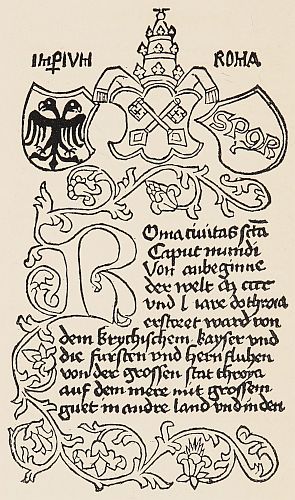 IMPIUM ROMA
SPQR
Roma tiuitas sctā
Caput mundi
Von anbeginne
der welt
vnd l iare do throia
erstoret ward von
dem krychischem kayser vnd
die fursten vnd hern fluhen
von der grossen stat throya
auf dem mere mit grossem
guet in andre land vnd in den